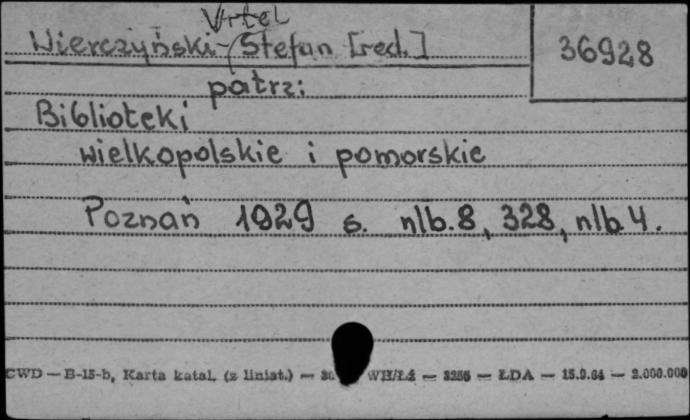 Vrtel
Wierczyński-Stefan [red.]
36928
patrz:
Biblioteki
wielkopolskie i pomorskie
Poznań 1929 s. nlb. 8, 328, nlb 4.
CWD — B-15-b, Karta katal. (z liniat.) — WH/Łź — 3255 — ŁDA — 15.9.64 — 2.000.000